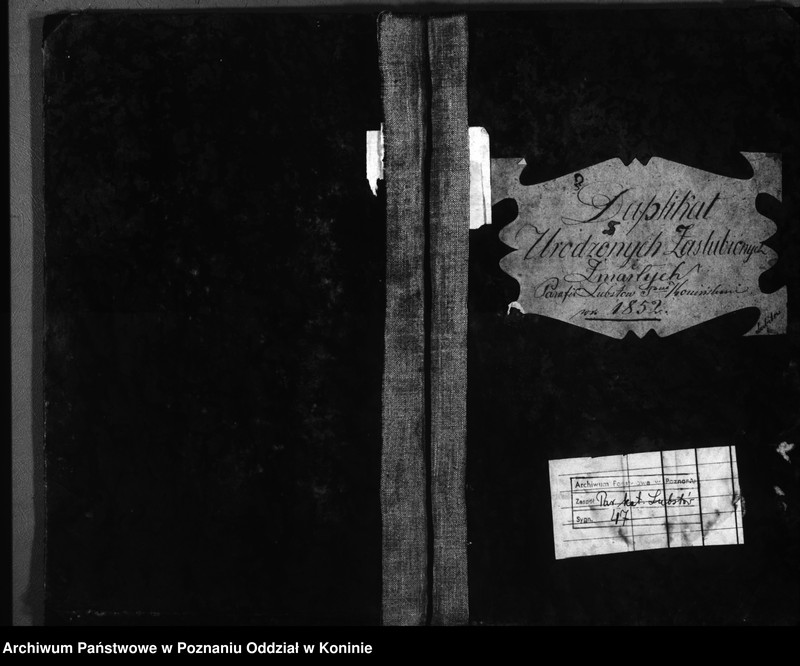 Duplikat
Urodzonych Zaslubionych
Zmarłych
Parafii Lubstow Ptu Konińskim
w r. 1852.
Archiwum Państwowe w Poznaniu
Zespół Par. kat. Lubstów
Sygn. 47
Archiwum Państwowe w Poznaniu Oddział w Koninie